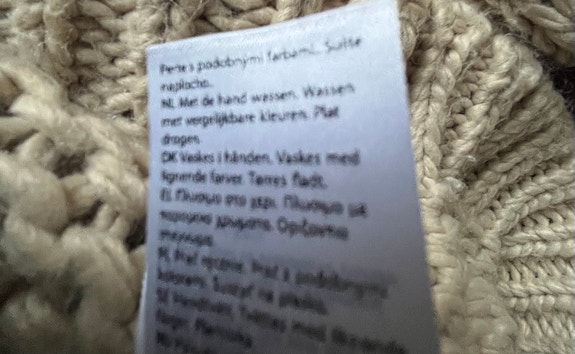 Perte s podobnými farbami. Sušte
naplocho.
NL Met de hand wassen. Wassen
met vergelijkbare kleuren. Plat
drogen.
DK Vaskes i hånden. Vaskes med
lignende farver. Tørres fladt.
EL Πλύσιμο στο χέρι. Πλύσιμο με
παρόμοια χρώματα. Οριζόντιο
στέγνωμα.
PL Prać ręcznie. Prać z podobnymi
kolorami. Suszyć na płasko.
SE Handtvätt. Tvättas med
färger.